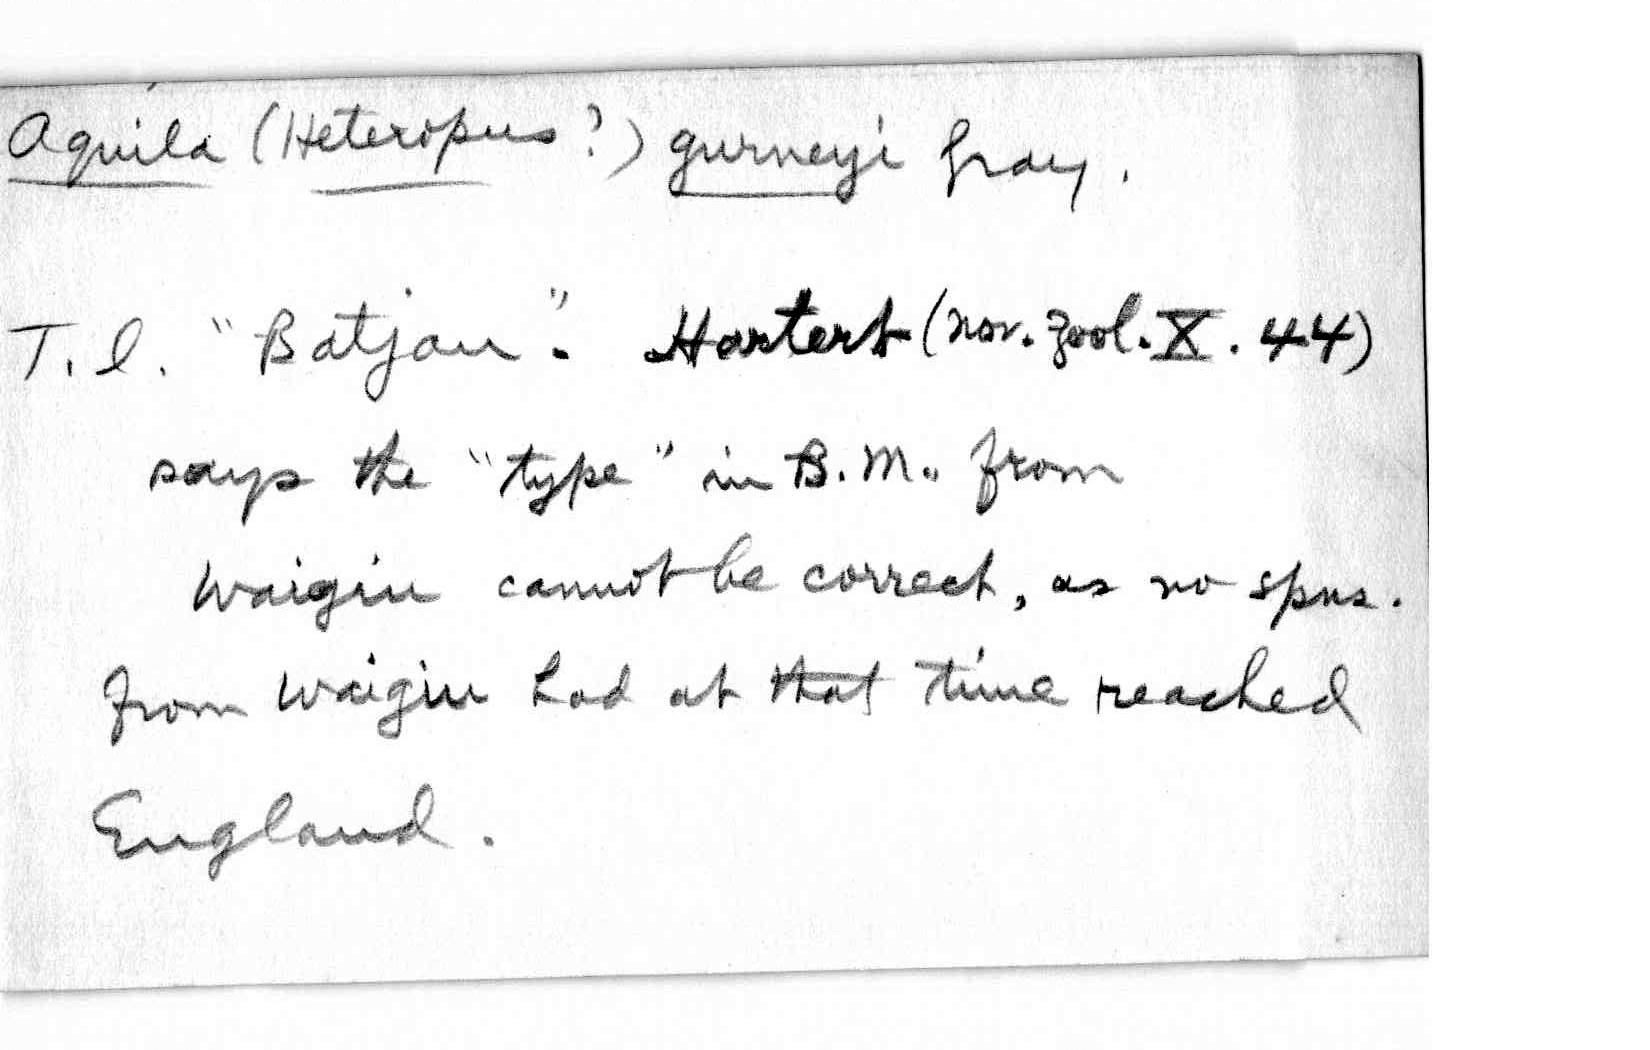 Aquila (Heteropus?) gurneyi Gray.
T. l. "Batjan". Hartert (Nov. Zool. X. 44)
says the "type" in B. M. from
Waigiu cannot be correct, as no spms.
from Waigiu had at that time reached
England.